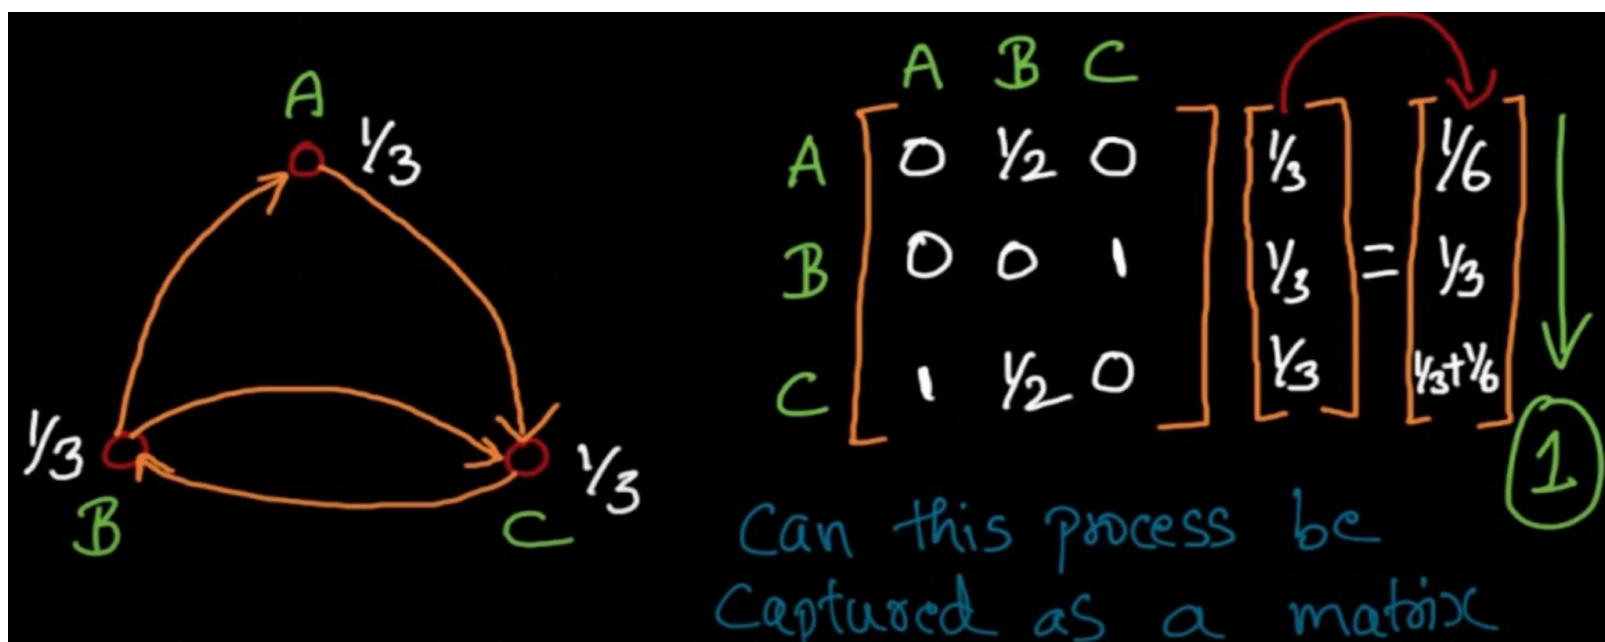 A
1/3
1/3
B
1/3
C
A B C
A 0 1/2 0 1/3 1/6
B 0 0 1 1/3 = 1/3
C 1 1/2 0 1/3 1/3+1/6
1
Can this process be
Captured as a matrix